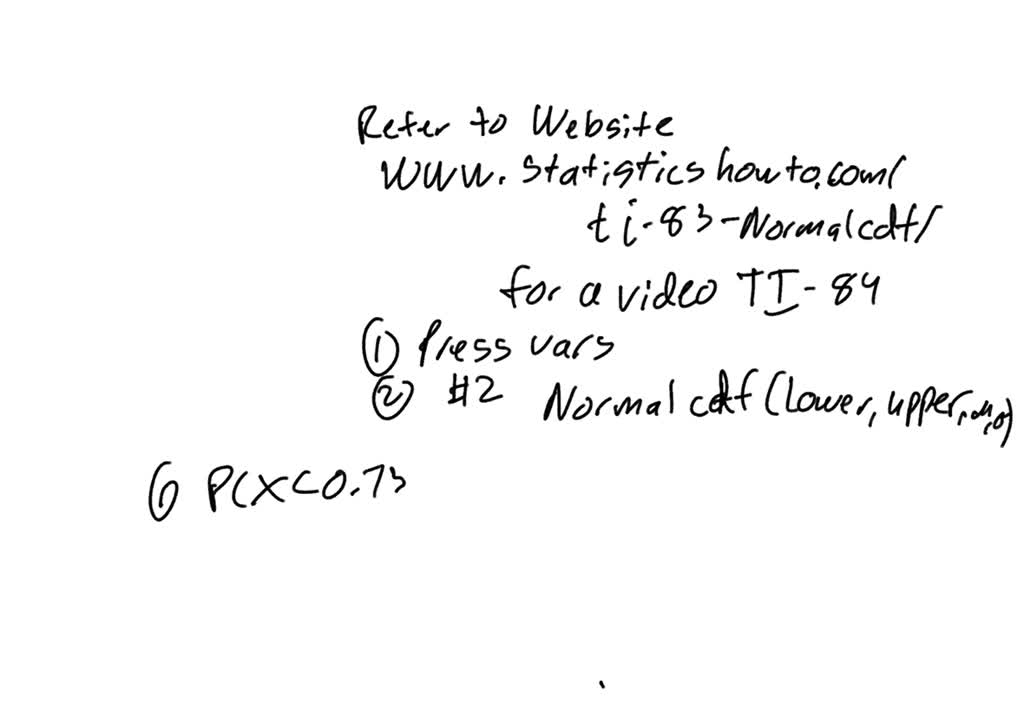 Refer to Website
www.statisticshowto.com/
ti-83-Normalcdf/
for a video TI-84
① Press vars
② #2 Normalcdf (lower, upper, μ, σ)
⑥ P(X<0.73